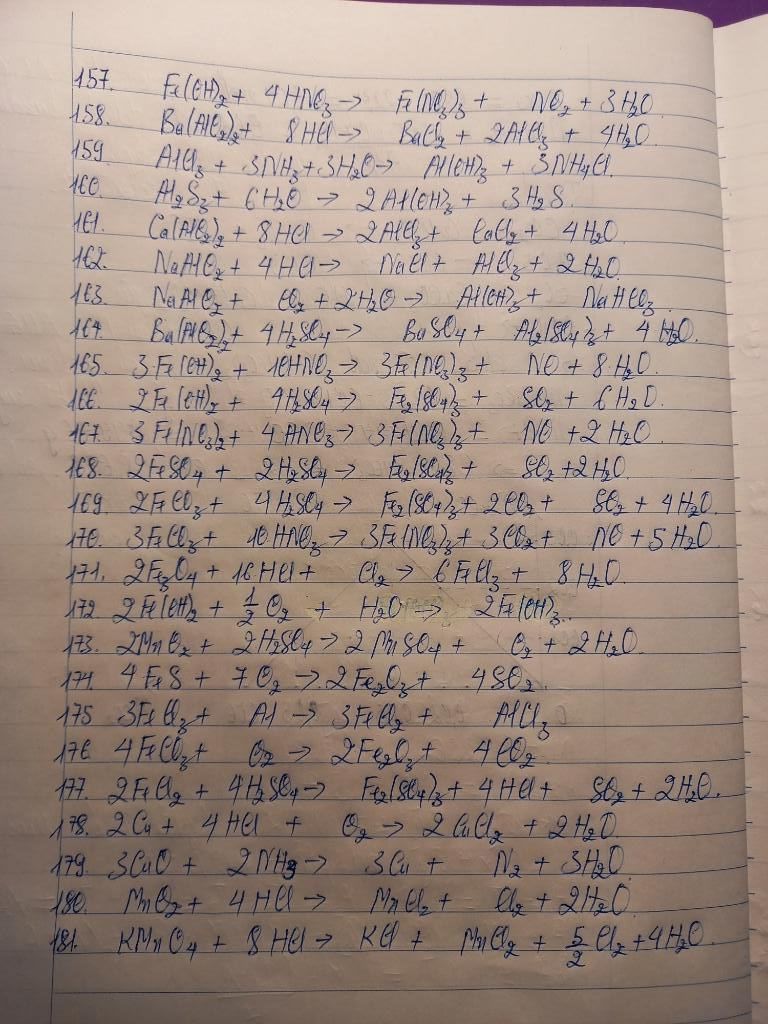 157. Fe(OH)₂ + 4HNO₃ → Fe(NO₃)₃ + NO₂ + 3H₂O
158. Ba(AlO₂)₂ + 8HCl → BaCl₂ + 2AlCl₃ + 4H₂O.
159. AlCl₃ + 3NH₃ + 3H₂O → Al(OH)₃ + 3NH₄Cl.
160. Al₂S₃ + 6H₂O → 2Al(OH)₃ + 3H₂S.
161. Ca(AlO₂)₂ + 8HCl → 2AlCl₃ + CaCl₂ + 4H₂O
162. NaAlO₂ + 4HCl → NaCl + AlCl₃ + 2H₂O
163. NaAlO₂ + CO₂ + 2H₂O → Al(OH)₃ + NaHCO₃
164. Ba(AlO₂)₂ + 4H₂SO₄ → BaSO₄ + Al₂(SO₄)₃ + 4H₂O.
165. 3Fe(OH)₂ + 10HNO₃ → 3Fe(NO₃)₃ + NO + 8H₂O.
166. 2Fe(OH)₂ + 4H₂SO₄ → Fe₂(SO₄)₃ + SO₂ + 6H₂O.
167. 3Fe(NO₃)₂ + 4HNO₃ → 3Fe(NO₃)₃ + NO + 2H₂O.
168. 2FeSO₄ + 2H₂SO₄ → Fe₂(SO₄)₃ + SO₂ + 2H₂O.
169. 2FeCO₃ + 4H₂SO₄ → Fe₂(SO₄)₃ + 2CO₂ + SO₂ + 4H₂O.
170. 3FeCO₃ + 10HNO₃ → 3Fe(NO₃)₃ + 3CO₂ + NO + 5H₂O.
171. 2Fe₃O₄ + 16HCl + Cl₂ → 6FeCl₃ + 8H₂O.
172. 2Fe(OH)₂ + 1/2 O₂ + H₂O → 2Fe(OH)₃.
173. 2MnO₂ + 2H₂SO₄ → 2MnSO₄ + O₂ + 2H₂O.
174. 4FeS + 7O₂ → 2Fe₂O₃ + 4SO₂.
175 3FeCl₃ + Al → 3FeCl₂ + AlCl₃
176. 4FeCO₃ + O₂ → 2Fe₂O₃ + 4CO₂
177. 2FeCl₂ + 4H₂SO₄ → Fe₂(SO₄)₃ + 4HCl + SO₂ + 2H₂O.
178. 2Cu + 4HCl + O₂ → 2CuCl₂ + 2H₂O
179. 3CuO + 2NH₃ → 3Cu + N₂ + 3H₂O
180. MnO₂ + 4HCl → MnCl₂ + Cl₂ + 2H₂O
181. KMnO₄ + 8HCl → KCl + MnCl₂ + 5/2 Cl₂ + 4H₂O.